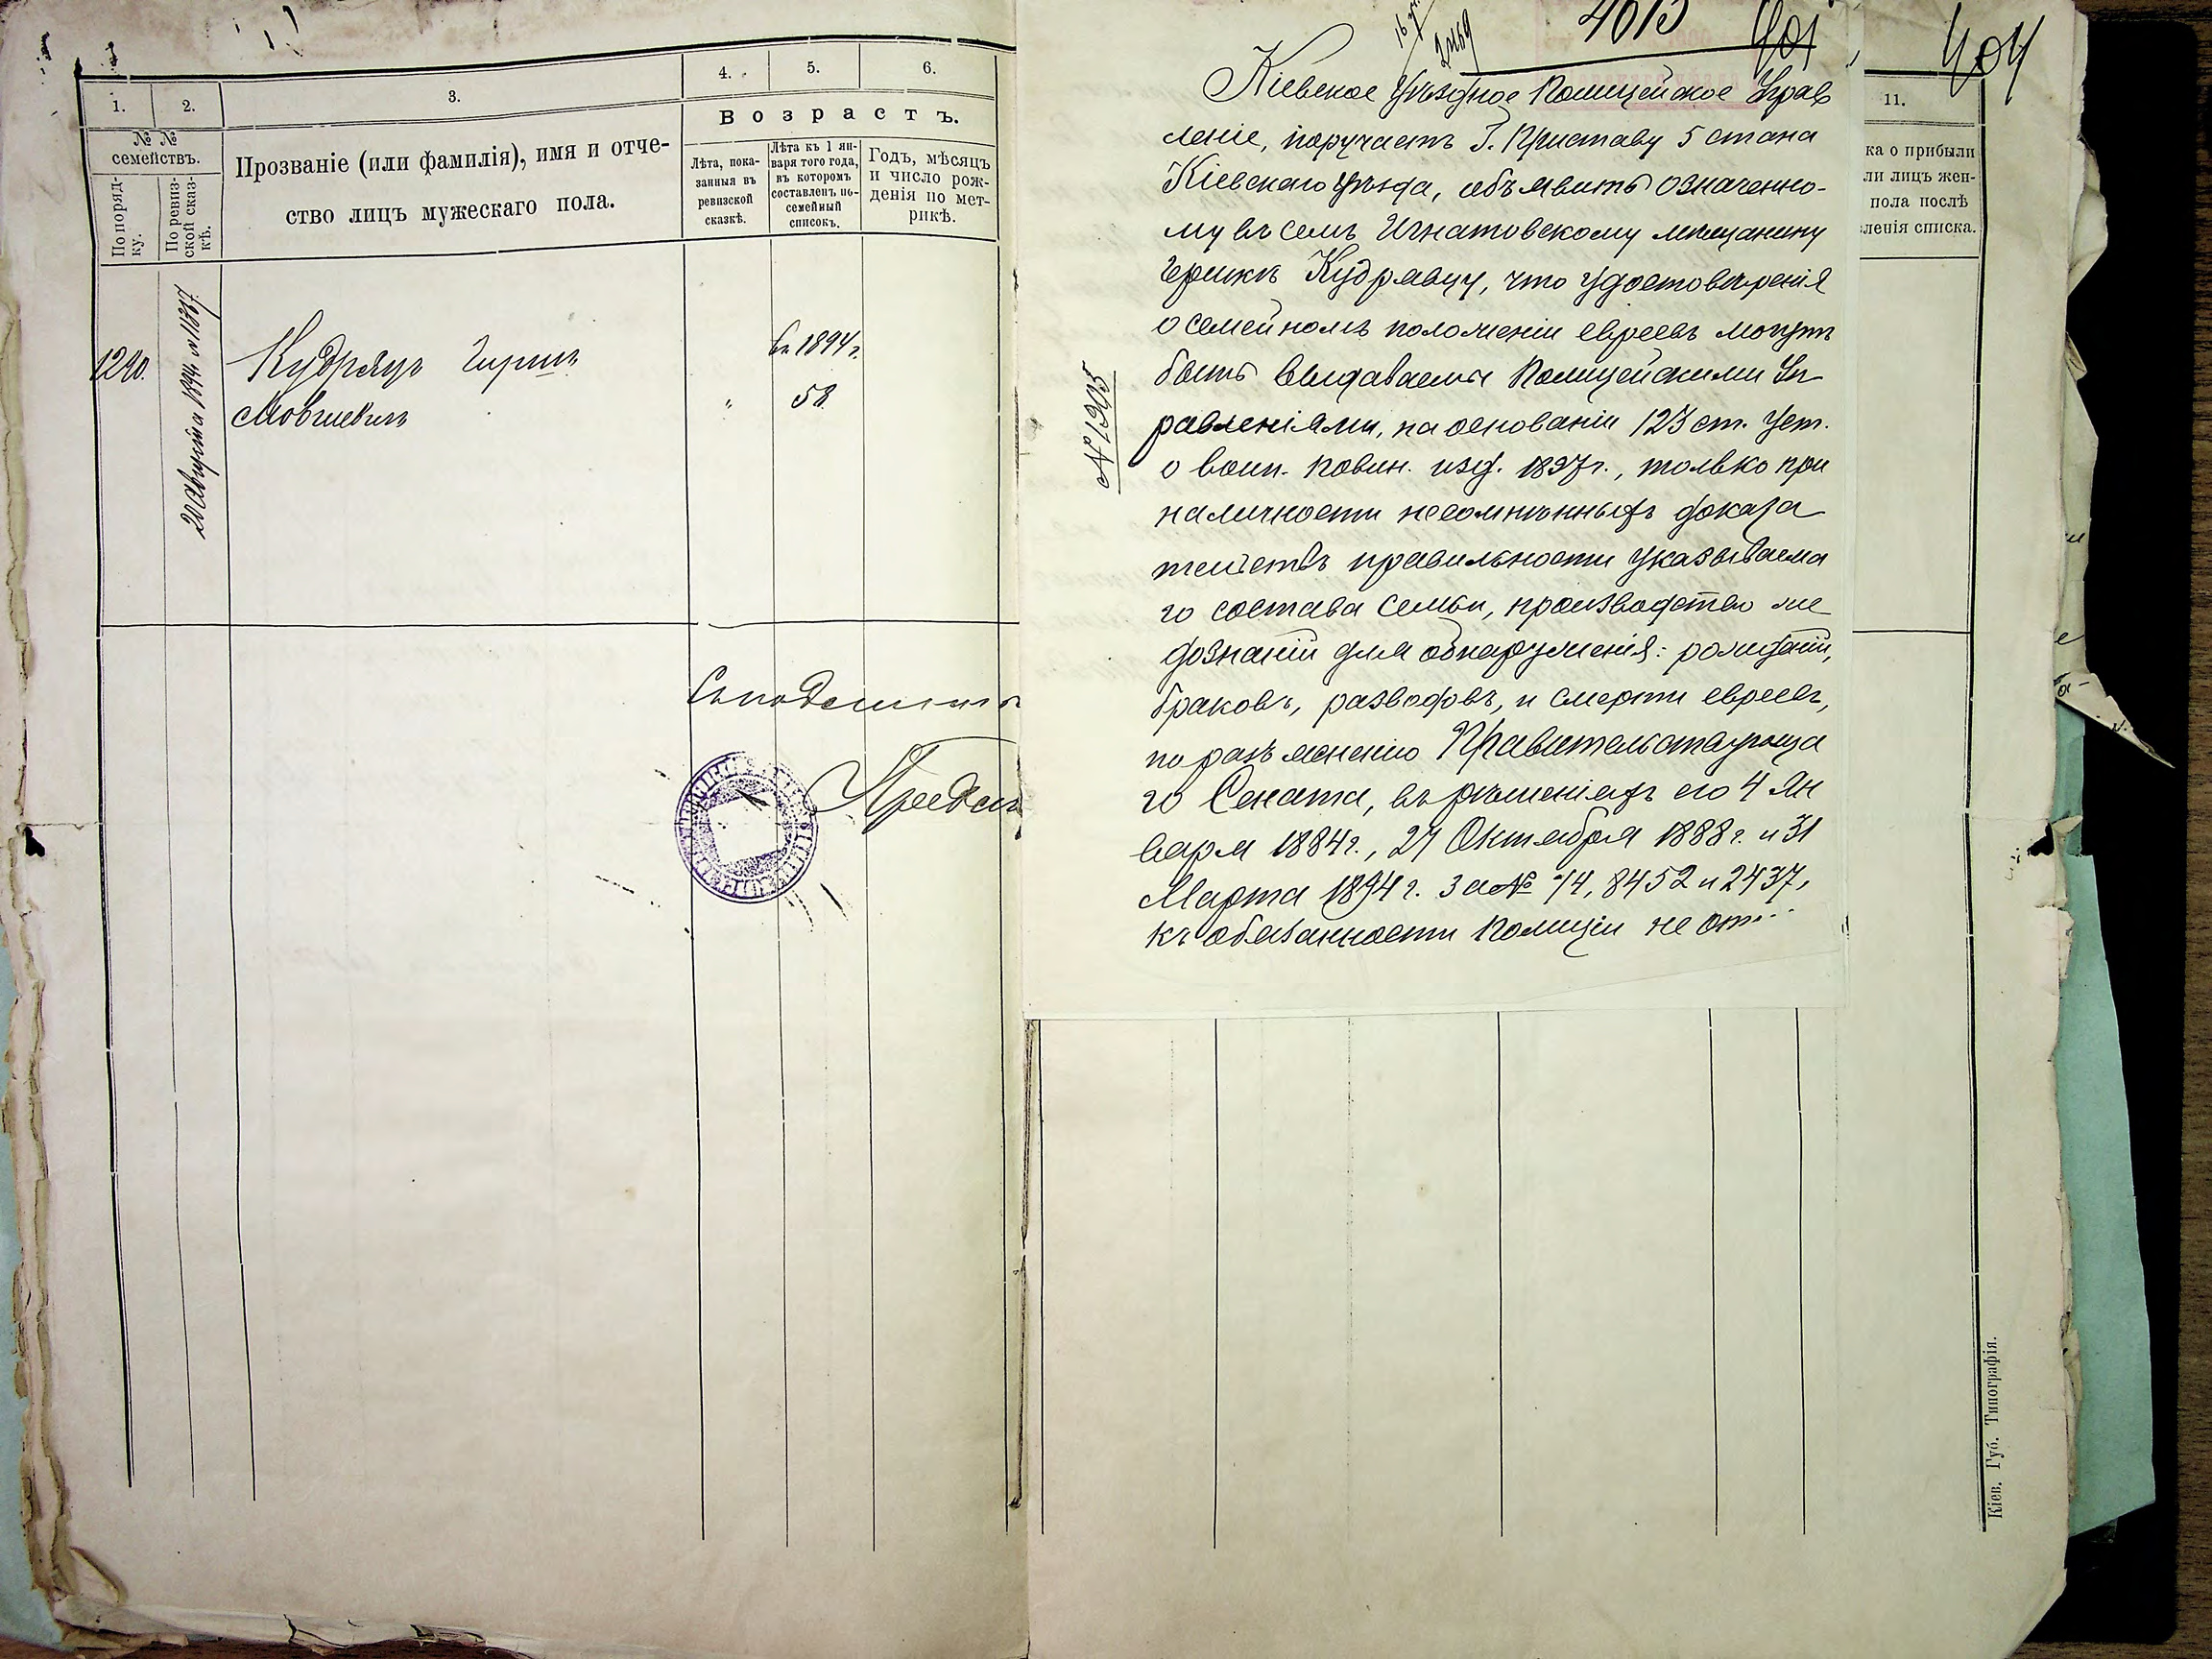 1.
2.
3.
4.
5.
6.
№ №
семействъ.
По поряд-
ку.
По ревиз-
ской сказ-
кѣ.
Прозваніе (или фамилія), имя и отче-
ство лицъ мужескаго пола.
Возрастъ.
Лѣта, пока-
занныя въ
ревизской
сказкѣ.
Лѣта къ 1 ян-
варя того года,
въ которомъ
составленъ по-
семейный
списокъ.
Годъ, мѣсяцъ
и число рож-
денія по мет-
рикѣ.
1240.
20 Августа 1894 №1837.
Кудрявцъ Гершъ
Мовшевичъ
въ 1894 г.
"
58.
4615
401
404
2469
№ 13905
Кіевское Уѣздное Полицейское Управ
леніе, поручаетъ Г. Приставу 5 стана
Кіевскаго уѣзда, объявить означенно-
му въ семъ Игнатовскому мѣщанину
Гершкѣ Кудрявцу, что удостовѣренія
о семейномъ положеніи евреевъ могутъ
быть выдаваемы Полицейскими Уп
равленіями, на основаніи 123 ст. Уст.
о воин. повин. изд. 1897 г., только при
наличности несомнѣнныхъ доказа
тельствъ правильности указываема
го состава семьи, производство же
дознаній для обнаруженія: рожденій,
браковъ, разводовъ, и смерти евреевъ,
по разъясненію Правительствующа
го Сената, въ рѣшеніяхъ его 4 Ян
варя 1884 г., 27 Октября 1888 г. и 31
Марта 1894 г. за № 74, 8452 и 2437,
къ обязанности полиціи не от
11.
ка о прибыли
ли лицъ жен-
пола послѣ
вленія списка.
Кіев. Губ. Типографія.